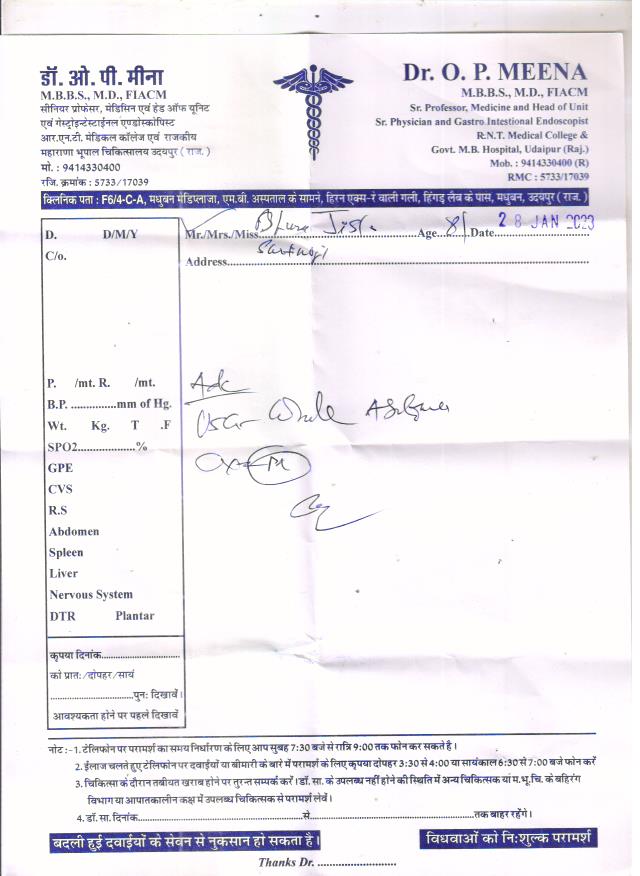 डॉ. ओ. पी. मीना
M.B.B.S., M.D., FIACM
सीनियर प्रोफेसर, मेडिसिन एवं हेड ऑफ यूनिट
एवं गेस्ट्रोइन्टेस्टाईनल एण्डोस्कोपिस्ट
आर.एन.टी. मेडिकल कॉलेज एवं राजकीय
महाराणा भूपाल चिकित्सालय उदयपुर ( राज. )
मो. : 9414330400
रजि. क्रमांक : 5733/17039
Dr. O. P. MEENA
M.B.B.S., M.D., FIACM
Sr. Professor, Medicine and Head of Unit
Sr. Physician and Gastro Intestional Endoscopist
R.N.T. Medical College &
Govt. M.B. Hospital, Udaipur (Raj.)
Mob. : 9414330400 (R)
RMC : 5733/17039
क्लिनिक पता : F6/4-C-A, मधुबन मेडिप्लाजा, एम.बी. अस्पताल के सामने, हिरन एक्स-रे वाली गली, हिंगड़ लैब के पास, मधुबन, उदयपुर ( राज. )
D. D/M/Y
C/o.
Mr./Mrs./Miss. Age. Date. 28 JAN 2023
Address
P. /mt. R. /mt.
B.P. ...............mm of Hg.
Wt. Kg. T .F
SPO2....................%
GPE
CVS
R.S
Abdomen
Spleen
Liver
Nervous System
DTR Plantar
Adv
Whole
कृपया दिनांक
को प्रातः/दोपहर/सायं
पुनः दिखावें।
आवश्यकता होने पर पहले दिखावें
नोट :-1. टेलिफोन पर परामर्श का समय निर्धारण के लिए आप सुबह 7:30 बजे से रात्रि 9:00 तक फोन कर सकते है।
2. ईलाज चलते हुए टेलिफोन पर दवाईयों या बीमारी के बारे में परामर्श के लिए कृपया दोपहर 3:30 से 4:00 या सायंकाल 6:30 से 7:00 बजे फोन करें
3. चिकित्सा के दौरान तबीयत खराब होने पर तुरन्त सम्पर्क करें। डॉ. सा. के उपलब्ध नहीं होने की स्थिति में अन्य चिकित्सक या म.भू.चि. के बहिरंग
विभाग या आपातकालीन कक्ष में उपलब्ध चिकित्सक से परामर्श लेवें।
4. डॉ. सा. दिनांक से तक बाहर रहेंगे।
बदली हुई दवाईयों के सेवन से नुकसान हो सकता है।
विधवाओं को निःशुल्क परामर्श
Thanks Dr. ........................